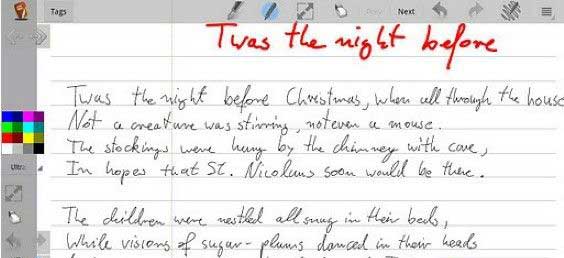 Tags
Next
Twas the night before
Twas the night before Christmas, when all through the house
Not a creature was stirring, not even a mouse.
The stockings were hung by the chimney with care,
Ultra
In hopes that St. Nicolaus soon would be there.
The children were nestled all snug in their beds,
While visions of sugar-plums danced in their heads